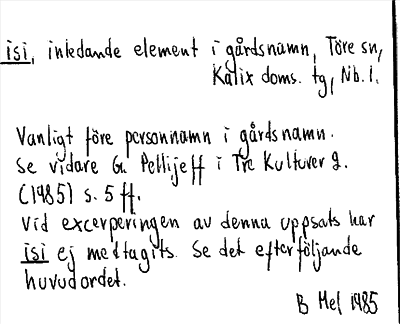 isi, inledande element i gårdsnamn, Töre sn,
Kalix doms. tg, Nb. l.
Vanligt före personnamn i gårdsnamn.
Se vidare G. Pellijeff i Tre Kulturer 2.
(1985) s. 5 ff.
Vid excerperingen av denna uppsats har
isi ej medtagits. Se det efterföljande
huvudordet.
B Mel 1985